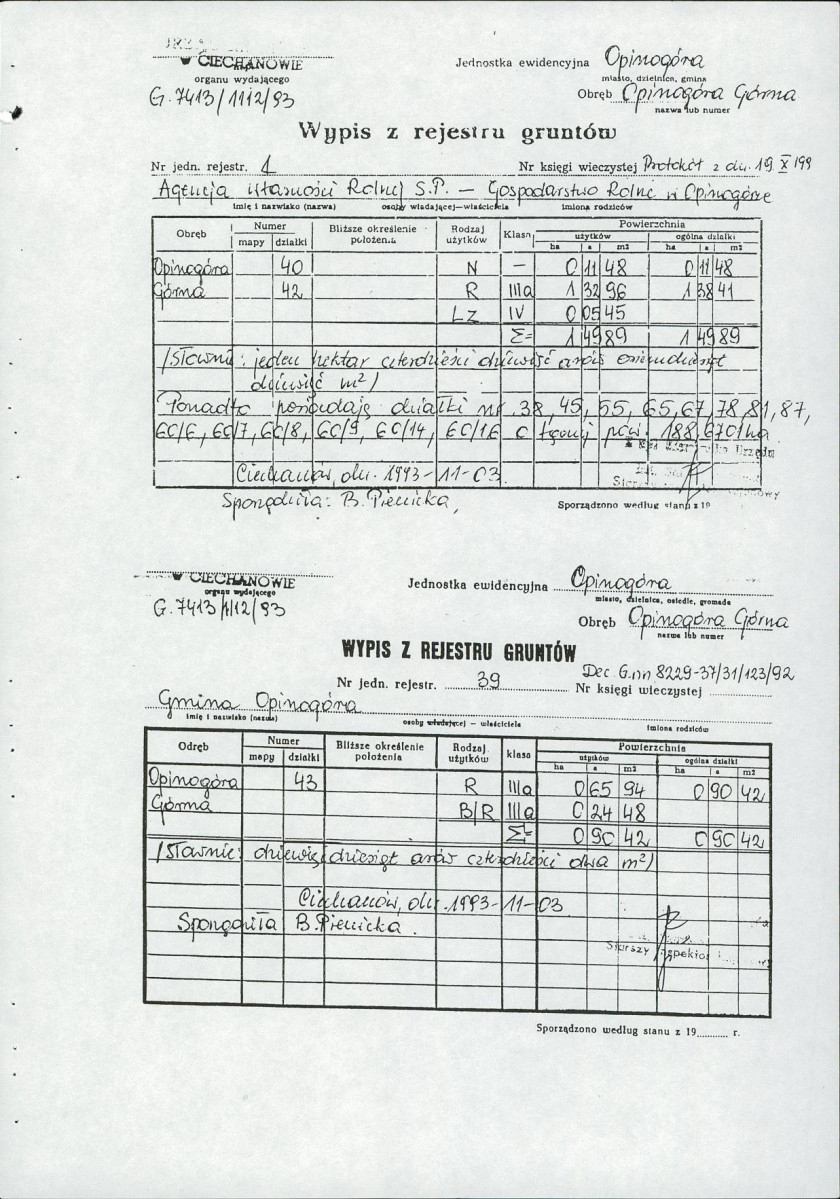 W CIECHANOWIE
organu wydającego
G.7413/1112/93
Jednostka ewidencyjna Opinogóra
miasto, dzielnica, gmina
Obręb Opinogóra Górna
nazwa lub numer
Wypis z rejestru gruntów
Nr jedn. rejestr. 1 Nr księgi wieczystej Protokół z dn. 19 X 199
Agencja Własności Rolnej S.P. — Gospodarstwo Rolne w Opinogórze
imię i nazwisko (nazwa) osoby władającej—właściciela imiona rodziców
Obręb Numer Bliższe określenie położenia Rodzaj użytków Klasa Powierzchnia
mapy działki użytków ogólna działki
ha a m² ha a m²
Opinogóra 40 N — 0 11 48 0 11 48
Górna 42 R IIIa 1 32 96 1 38 41
Lz IV 0 05 45
Σ= 1 49 89 1 49 89
/Słownie: jeden hektar czterdzieści dziewięć arów osiemdziesiąt
dziewięć m²/
Ponadto posiadają działki nr 38, 45, 55, 65, 67, 78, 81, 87,
60/6, 60/7, 60/8, 60/9, 60/14, 60/16 o łącznej pow. 188,670/ha
Ciechanów, dn. 1993-11-03.
Sporządziła: B. Pienicka,
Sporządzono według stanu z 19
W CIECHANOWIE
organu wydającego
G.7413/1/12/93
Jednostka ewidencyjna Opinogóra
miasto, dzielnica, osiedle, gromada
Obręb Opinogóra Górna
nazwa lub numer
WYPIS Z REJESTRU GRUNTÓW
Dec G.nn 8229-37/31/123/92
Nr jedn. rejestr. 39 Nr księgi wieczystej
Gmina Opinogóra
imię i nazwisko (nazwa) osoby władającej — właściciela imiona rodziców
Obręb Numer Bliższe określenie położenia Rodzaj użytków klasa Powierzchnia
mapy działki użytków ogólna działki
ha a m² ha a m²
Opinogóra 43 R IIIa 0 65 94 0 90 42
Górna B/R IIIa 0 24 48
Σ= 0 90 42 0 90 42
/Słownie: dziewięćdziesiąt arów czterdzieści dwa m²/
Ciechanów, dn. 1993-11-03
Sporządziła B. Pienicka.
Starszy Inspektor
Sporządzono według stanu z 19 r.